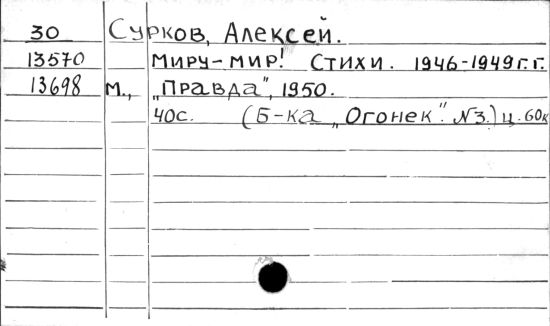 30 Сурков, Алексей.
13570 Миру-мир! Стихи. 1946-1949г.г.
13698 М., „Правда", 1950.
40с. (Б-ка „Огонек". №3.) ц. 60к